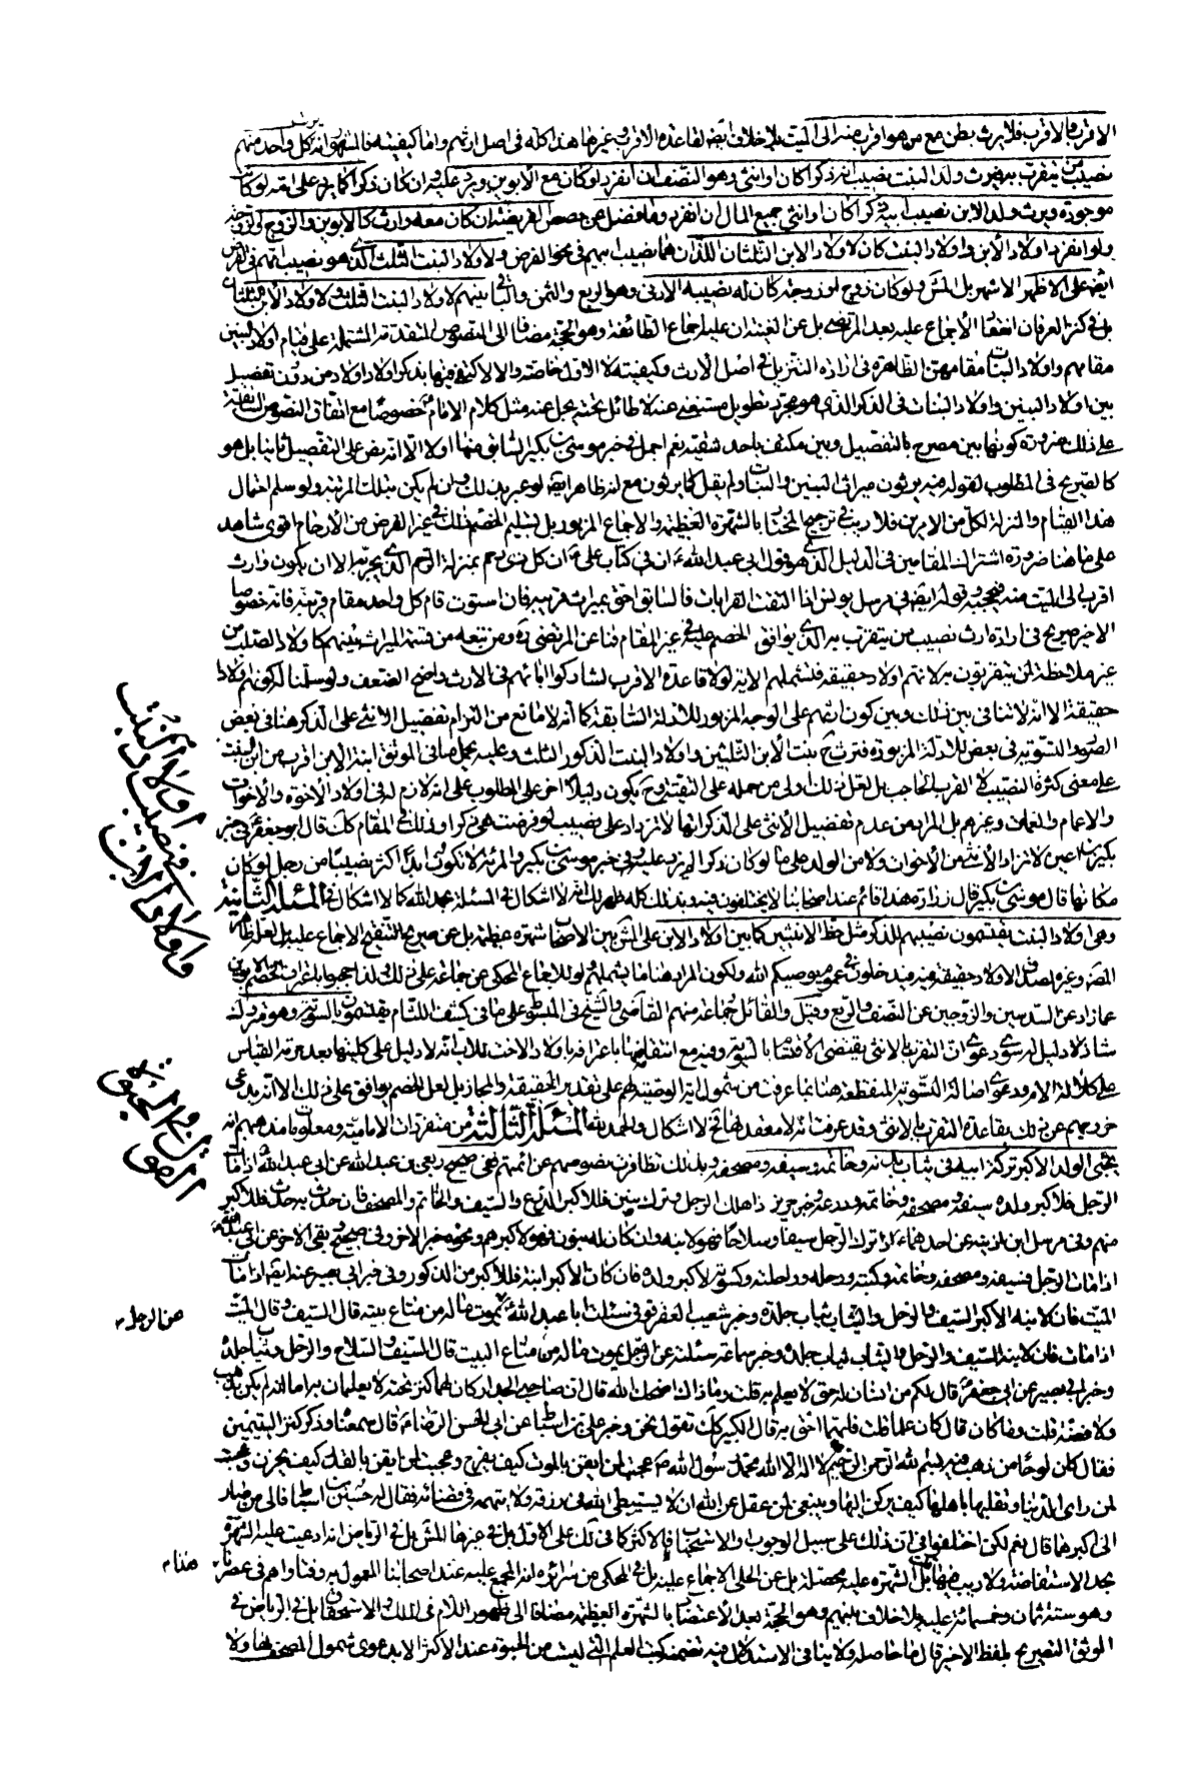 الاقرب فالاقرب فلا يرث بطن مع من هو اقرب منه الى الميت بلا خلاف لقاعدة الاقرب وغيرها هذا كله فى اصل ارثهم واما كيفيته فالمشهور انه يرث كل واحد منهم
نصيب من يتقرب به فيرث ولد البنت نصيب امه ذكرا كان او انثى وهو النصف ان انفرد او كان مع الابوين ويرد عليه وان كان ذكرا كما يرد على امه لو كانت
موجودة ويرث ولد الابن نصيب ابيه ذكرا كان او انثى جميع المال ان انفرد وما فضل عن حصص الفريضة ان كان معه وارث كالابوين والزوج او الزوجة
ولو انفرد اولاد الابن واولاد البنت كان لاولاد الابن الثلثان اللذان هما نصيب ابيهم فى نحو الفرض ولاولاد البنت الثلث الذى هو نصيب امهم فى الفرض
ايضا على الاظهر الاشهر بل المش ولو كان زوج او زوجة كان له نصيبه الادنى وهو الربع والثمن والباقى بينهم لاولاد البنت الثلث ولاولاد الابن الثلثان
بل فى كنز العرفان انعقد الاجماع عليه بعد المرتضى بل عن الغنية ان عليه اجماع الطائفة وهو الحجة مضافا الى النصوص المتقدمة المشتملة على قيام اولاد البنين
مقامهم واولاد البنات مقامهن الظاهرة فى ارادة التنزيل فى اصل الارث وكيفيته لا الاول خاصة والا لاكتفى فيها بذكر اولاد اولاد من دون تفصيل
بين اولاد البنين واولاد البنات فى الذكر الذى هو مجرد تطويل مستغنى عنه لا طائل تحته يجل عنه مثل كلام الامام خصوصا مع اتفاق النصوص السابقة
على ذلك ضرورة كونها بين مصرح بالتفصيل وبين مكتف باحد شقيه نعم اجمل فى خبر موسى بن بكير السابق منها اولا الا انه نص على التفصيل ثانيا بل هو
كالصريح فى المطلوب لقوله فيه يرثون ميراث البنين والبنات ولم يقل كما يرثون مع انه ظاهر ايضا لو عبر بذلك وان لم يكن بتلك المرتبة ولو سلم احتمال
هذا القيام والمنزلة لكل من الامرين فلا ريب فى ترجيح المختار بالشهرة العظيمة والاجماع المزبور بل تسليم الخصم ذلك فى غير الفرض من الارحام اقوى شاهد
على ما هنا ضرورة اشتراك المقامين فى الدليل الذى هو قول ابى عبد الله ان فى كتاب على ان كل ذى رحم بمنزلة الرحم الذى يجر به الا ان يكون وارث
اقرب الى الميت منه فيحجبه وقوله ايضا فى مرسل يونس اذا التقت القرابات فالسابق احق بميراث قريبه فان استوت قام كل واحد مقام قريبه فانه خصوصا
الاخير صريح فى ارادة ارث نصيب من يتقرب به الذى يوافق الخصم عليه فى غير المقام فما عن المرتضى ره ومن تبعه من قسمة الميراث بينهم كاولاد الصلب من
غير ملاحظة لمن يتقربون به لانهم اولاد حقيقة فتشملهم الاية لولا قاعدة الاقرب لشاركوا ابائهم فى الارث واضح الضعف ولو سلمنا لكونهم اولادا
حقيقة الا انه لا تنافى بين ذلك وبين كون ارثهم على الوجه المزبور للادلة السابقة كما انه لا مانع من التزام تفضيل الانثى على الذكر هنا فى بعض
الصور والتسوية فى بعض للادلة المزبورة فترث ح بنت الابن الثلثين واولاد البنت الذكور الثلث وعليه يحمل ما فى الموثق ابنة الابن اقرب من ابن البنت
على معنى كثرة النصيب لا القرب الحاجب بل لعل ذلك اولى من حمله على التقية وح يكون دليلا اخر على المطلوب على انه لازم له فى اولاد الاخوة والاخوات
والاعمام والعمات وغيرهم بل المراد من عدم تفضيل الانثى على الذكر انها لا تزداد على نصيبه لو فرضت هى ذكرا وذلك فى المقام كك قال ابو جعفر فى خبر
بكير بن اعين لا تزداد الانثى من الاخوات ولا من الولد على ما لو كان ذكرا لم يزد عليه وفى خبر موسى بن بكير والمرئة لا تكون ابدا اكثر نصيبا من رجل لو كان
مكانها قال موسى بن بكير قال زرارة هذا قائم عند اصحابنا لا يختلفون فيه وبذلك كله ظهر لك انه لا اشكال فى المسئلة بحمد الله كما لا اشكال فى المسئلة الثانية
وهى اولاد البنت يقتسمون نصيبهم للذكر مثل حظ الانثيين كما بين اولاد الابن على المش بين الاصحاب شهرة عظيمة بل عن صريح التنقيح الاجماع عليه بل لعله ظاهر
المض وغيره لصدق الاولاد حقيقة فيدخلون فى عموم يوصيكم الله ولكون المراد هنا ما يشملهم ولو للاجماع المحكى عن جماعة على ذلك ولذا حجبوا باعتراف الخصم الابوين
عما زاد عن السدسين والزوجين عن النصف والربع وقيل والقائل جماعة منهم القاضى والشيخ فى المبسوط على ما فى كشف اللثام يقتسمون بالسوية وهو متروك لانه
شاذ لا دليل له سوى دعوى ان التقرب بالانثى يقتضى الاقتسام بالسوية وفيه مع انتقاضها باعترافه باولاد الاخت للاب انه لا دليل على كليتها بعد حرمة القياس
على كلالة الام ودعوى اصالة التسوية المنقطعة هنا بما عرفت من شمول اية الوصية لهم على تقدير الحقيقة والمجاز بل لعل الخصم يوافق على ذلك الا انه يدعى
خروجهم عن ذلك بقاعدة التقرب بالانثى وقد عرفت انه لا معقد لها فح لا اشكال والحمد لله المسئلة الثالثة من متفردات الامامية ومعلومات مذهبهم انه
يحبى الولد الاكبر من تركة ابيه فى ثياب بدنه وخاتمه وسيفه ومصحفه وبذلك تظافرت نصوصهم عن ائمتهم ففى صحيح ربعى بن عبد الله عن ابى عبد الله اذا مات
الرجل فلاكبر ولده سيفه ومصحفه وخاتمه ودرعه وخبر حريز اذا هلك الرجل وترك بنين فللاكبر الدرع والسيف والخاتم والمصحف فان حدث به حدث فللاكبر
منهم وفى مرسل ابن اذينة عن احدهما اذا ترك الرجل سيفا وسلاحا فهو لابنه وان كان له بنون فهو لاكبرهم ونحوه خبر الاخر وفى صحيح ربعى الاخر عن ابى عبد الله
اذا مات الرجل فسيفه ومصحفه وخاتمه وكتبه ورحله وراحلته وكسوته لاكبر ولده فان كان الاكبر ابنة فللاكبر من الذكور وفى خبر ابى بصير عنه ايضا اذا مات
الميت فان لابنه الاكبر السيف والرحل والثياب ثياب جلده وخبر شعيب العقرقوفى سئلت ابا عبد الله عن الرجل يموت ماله من متاع بيته قال السيف وقال الميت
اذا مات فان لابنه السيف والرحل والثياب ثياب جلده وخبر سماعة سئلته عن الرجل يموت ماله من متاع البيت قال السيف والسلاح والرحل وثياب جلده
وخبر ابى بصير عن ابى جعفر قال كم من انسان له حق لا يعلم به قلت وما ذاك اصلحك الله قال ان صاحبى الجدار كان لهما كنز تحته لا يعلمان به اما انه لم يكن بذهب
ولا فضة قلت وما كان قال كان علما قلت فايهما احق به قال الكبير كك نقول نحن وخبر على بن اسباط عن ابى الحسن الرضا قال سمعناه وذكر كنز اليتيمين
فقال كان لوحا من ذهب فيه بسم الله الرحمن الرحيم لا اله الا الله محمد رسول الله عجبت لمن ايقن بالموت كيف يفرح وعجبت لمن ايقن بالقدر كيف يحزن وعجبت
لمن راى الدنيا وتقلبها باهلها كيف يركن اليها وينبغى لمن عقل عن الله ان لا يستبطئ الله فى رزقه ولا يتهمه فى قضائه فقال له حسين بن اسباط فالى من صار
الى اكبرهما قال نعم لكن اختلفوا فى ان ذلك على سبيل الوجوب او الاستحباب فالاكثر كما فى لك على الاول بل فى غيرها المش بل فى الرياض انه ادعيت عليه الشهرة
بحد الاستفاضة ولا ريب فيها بل الشهرة عليه محصلة بل عن الحلى الاجماع عليه بل فى المحكى من سرائره انه المجمع عليه عند اصحابنا المعمول به وفتاواهم فى عصرنا
وهو سنة ثمان وخمسمائة عليه بلا خلاف بينهم وهو الحجة بعد الاعتضاد بالشهرة العظيمة مضافا الى ظهور اللام فى الملك او الاستحقاق بل فى الرياض فى
الوثق التصريح بلفظ الاخير قال ما حاصله ولا ينافى الاستدلال فيه تضمنه كتب العلم التى ليست من الحبوة عند الاكثر الا بدعوى شمول المصحف لها ولا
اولاد البنت
فى نصيب
واولاد الابن
فى الحبوة
هذا الرجل
هذا